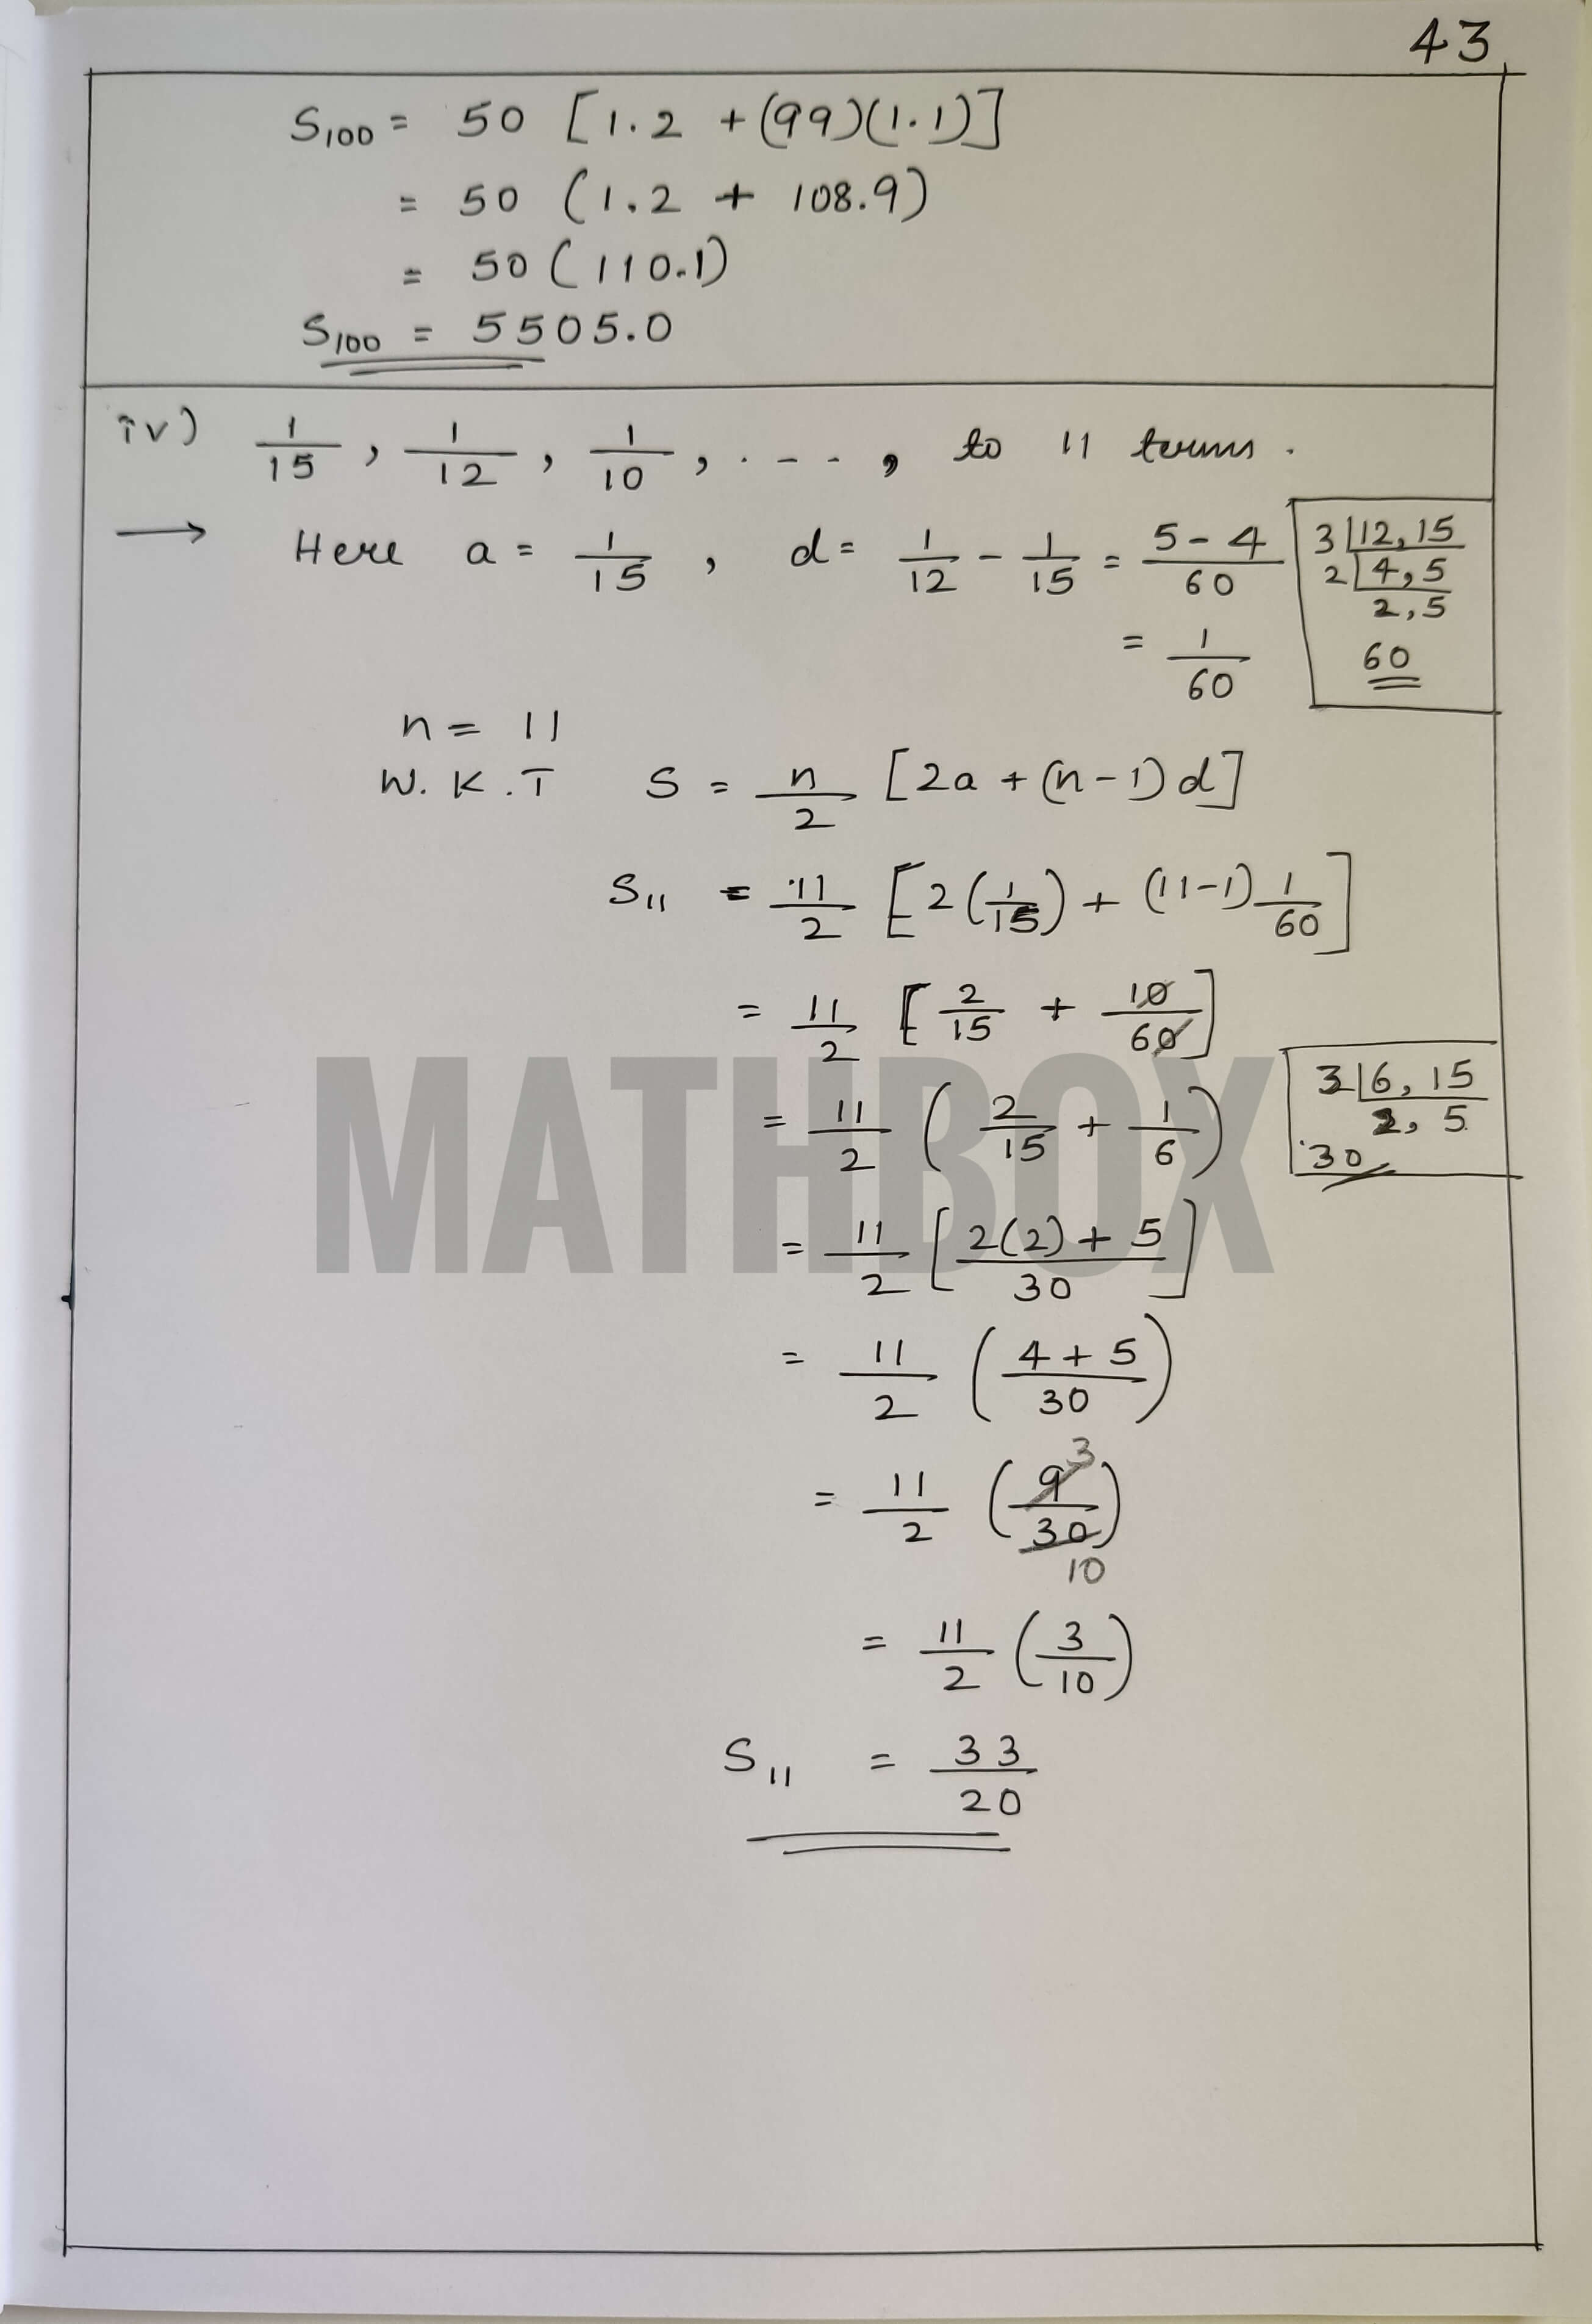 43
S₁₀₀ = 50 [1.2 + (99)(1.1)]
= 50 (1.2 + 108.9)
= 50 (110.1)
S₁₀₀ = 5505.0
iv) 1/15, 1/12, 1/10, . - - -, to 11 terms.
→ Here a = 1/15, d = 1/12 - 1/15 = (5 - 4)/60
= 1/60
3 | 12, 15
2 | 4, 5
2, 5
60
n = 11
W.K.T S = n/2 [2a + (n - 1) d]
S₁₁ = 11/2 [2(1/15) + (11-1) 1/60]
= 11/2 [2/15 + 10/60]
= 11/2 (2/15 + 1/6)
3 | 6, 15
2, 5
30
MATHBOX
= 11/2 [(2(2) + 5)/30]
= 11/2 ((4 + 5)/30)
= 11/2 (9/30) 3 10
= 11/2 (3/10)
S₁₁ = 33/20